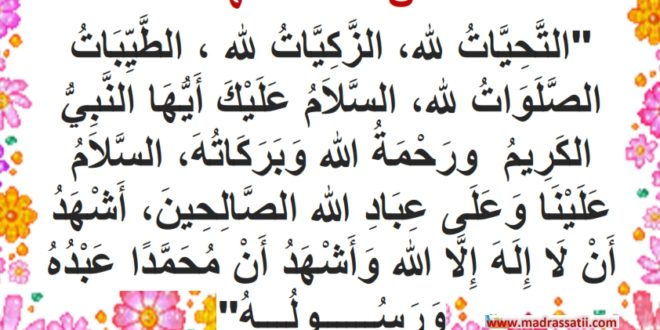 "التَّحِيَّاتُ لله، الزَّكِيَّاتُ لله ، الطَّيِّبَاتُ
الصَّلَوَاتُ لله، السَّلاَمُ عَلَيْكَ أَيُّهَا النَّبِيُّ
الكَرِيمُ ورَحْمَةُ الله وَبَرَكَاتُهَ، السَّلاَمُ
عَلَيْنَا وَعَلَى عِبَادِ الله الصَّالِحِينَ، أَشْهَدُ
أَنْ لَا إِلَهَ إِلَّا الله وَأَشْهَدُ أَنْ مُحَمَّدًا عَبْدُهُ
وَرَسُـــــولُـــهُ"
www.madrassatii.com